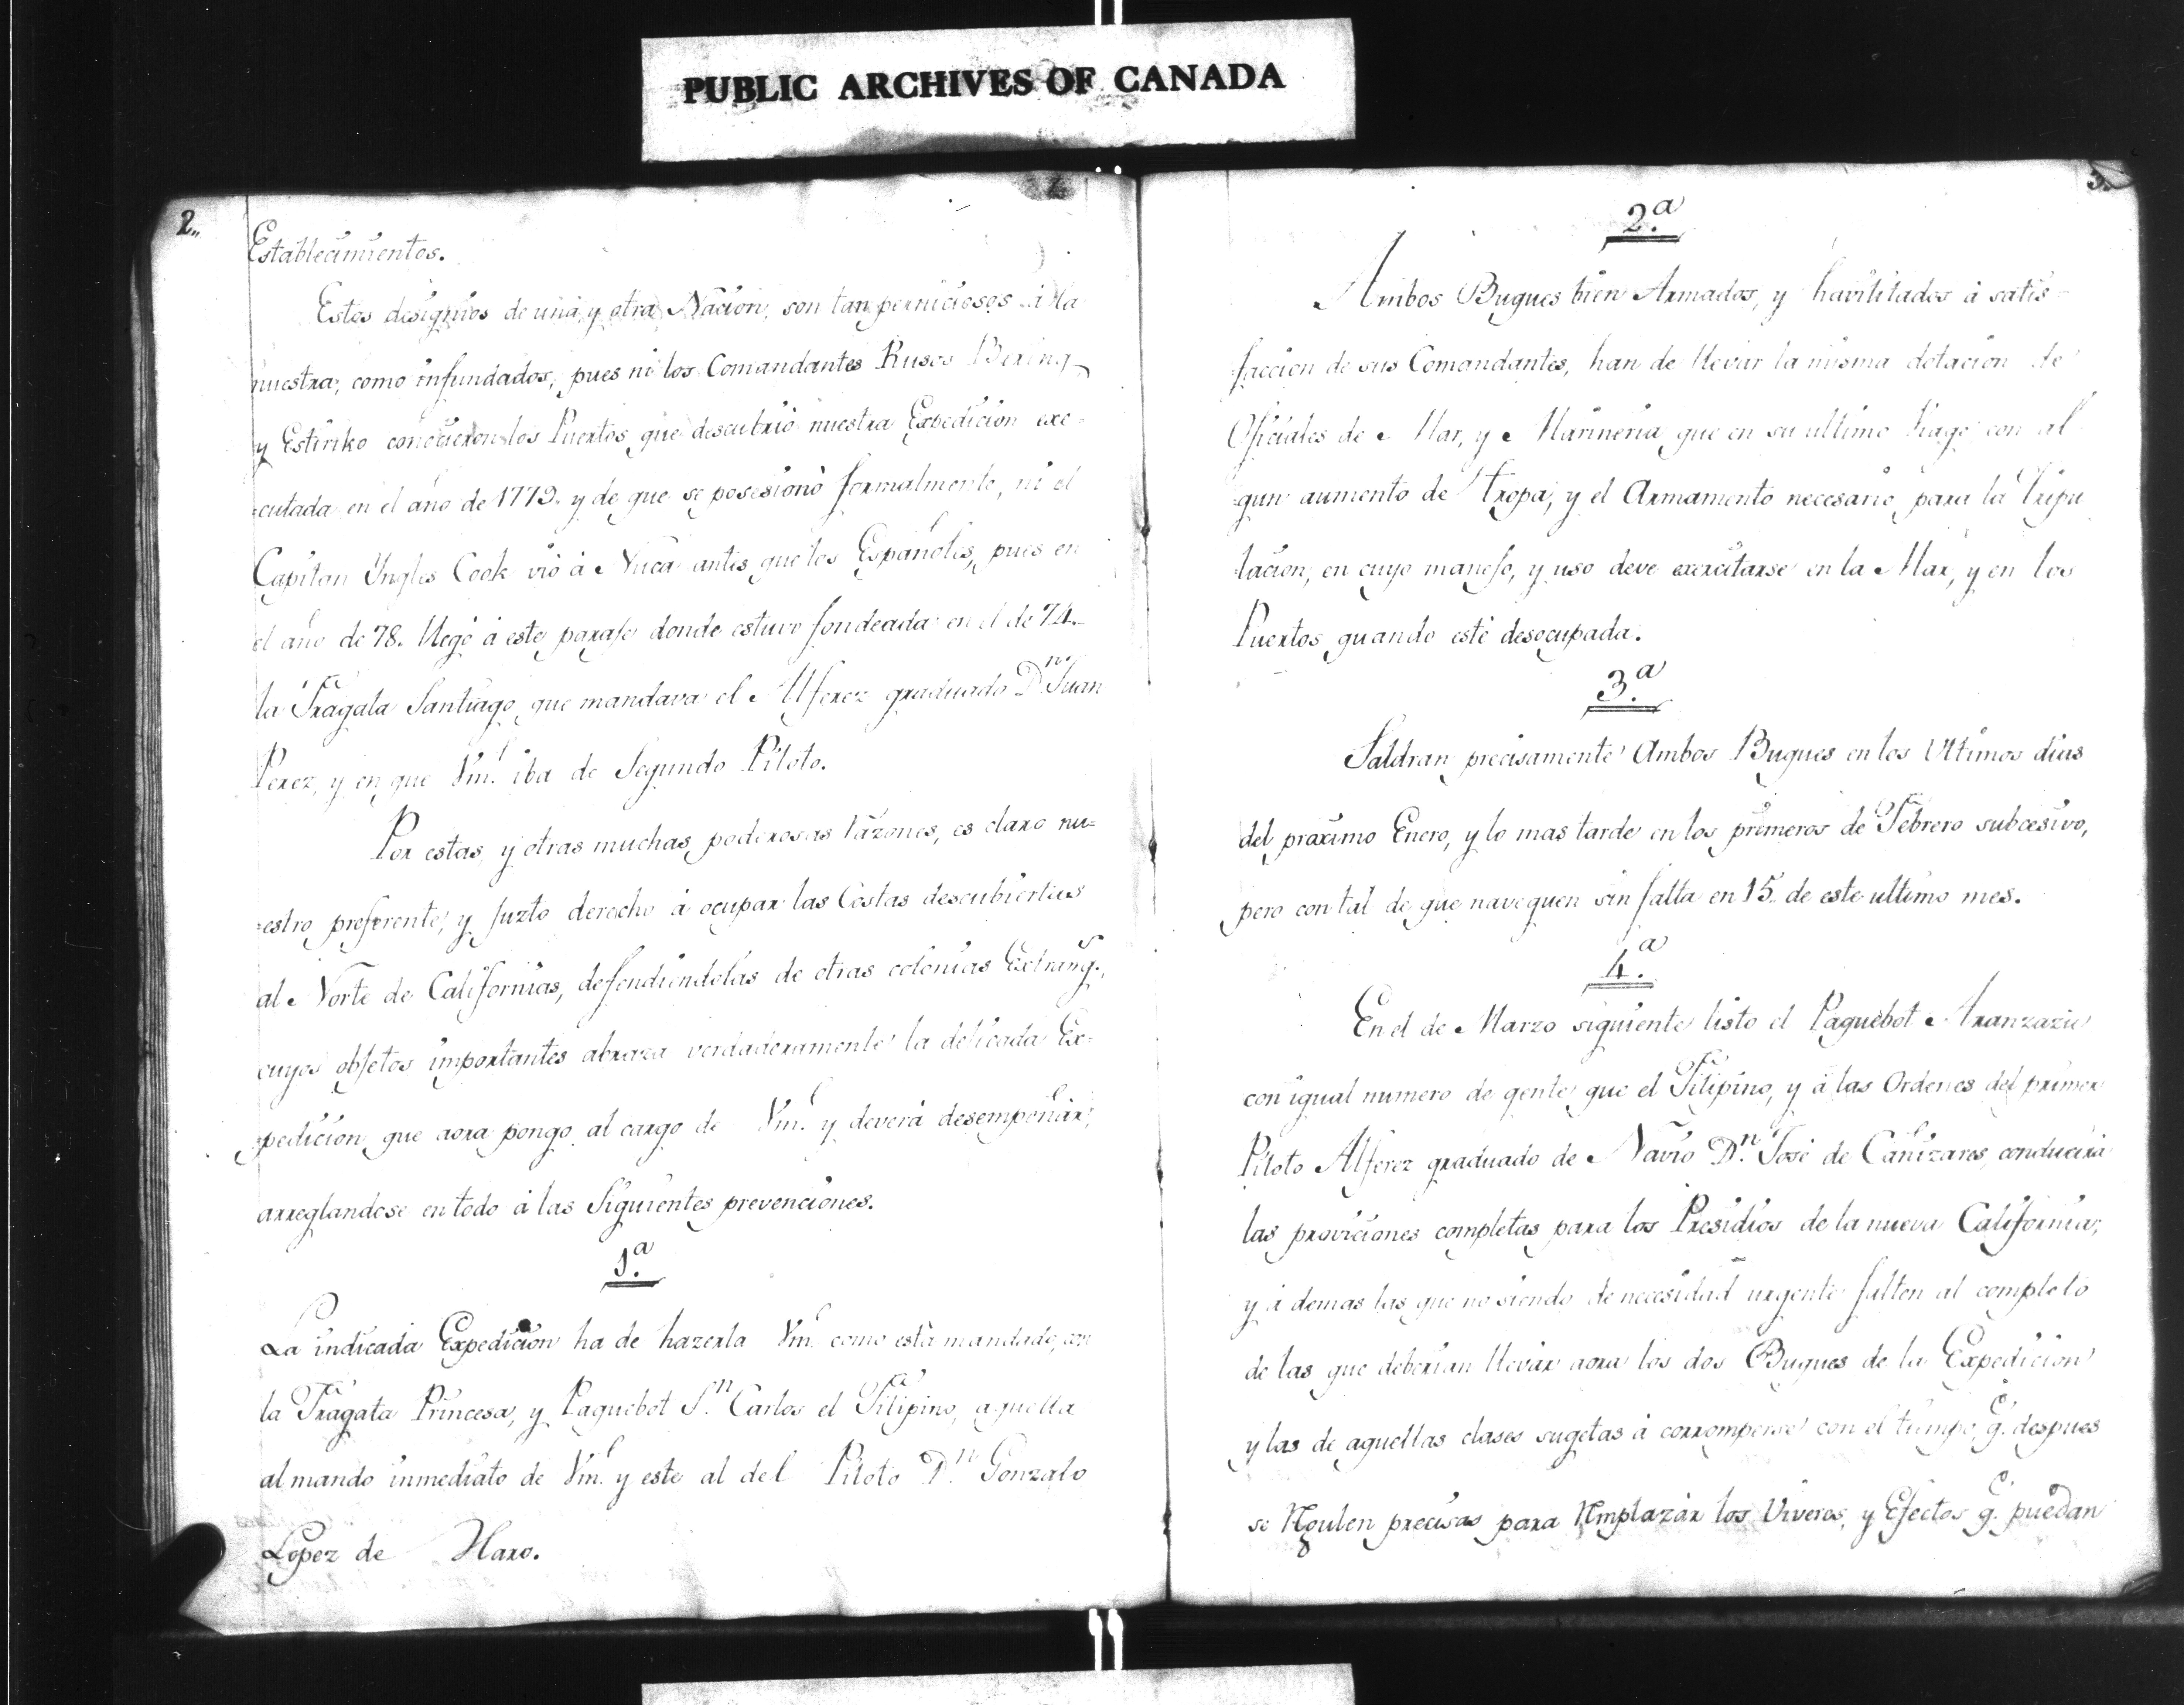 PUBLIC ARCHIVES OF CANADA
2..
Establecimientos.
Estos designios de una, y otra Nacion, son tan perniciosos à la
nuestra, como infundados, pues ni los Comandantes Rusos Bering,
y Estiriko conocieron los Puertos, que descubriò nuestra Expedicion exe=
=cutada en el año de 1779. y de que se posesionò formalmente, ni el
Capitan Yngles Cook viò à Nuca antes que los Españoles, pues en
el año de 78. llegò à este paraje donde estuvo fondeada en el de 74.
la Fragata Santiago, que mandava el Alferez graduado D.n Juan
Perez, y en que Vm. iba de Segundo Piloto.
Por estas, y otras muchas, poderosas razones, es claro nu=
=estro preferente, y Juzto derecho à ocupar las Costas descubiertas
al Norte de Californias, defendiendolas de otras colonias Extrang.s,
cuyos objetos importantes abraza verdaderamente la delicada Ex=
=pedicion, que aora pongo al cargo de Vm. y deverà desempeñar,
arreglandose en todo à las Siguientes prevenciones.
1.a
La indicada Expedicion ha de hazerla Vm. como està mandado, con
la Fragata Princesa, y Paquebot S.n Carlos el Filipino, aquella
al mando inmediato de Vm. y este al del Piloto D.n Gonzalo
Lopez de Haro.
3..
2.a
Ambos Buques bien Armados, y havilitados à satis=
faccion de sus Comandantes, han de llevar la misma dotacion de
Oficiales de Mar, y Marineria que en su ultimo Viage con al
gun aumento de Tropa, y el Armamento necesario, para la Tripu
lacion, en cuyo manejo, y uso deve exercitarse en la Mar, y en los
Puertos quando estè desocupada.
3.a
Saldran precisamente Ambos Buques en los Ultimos dias
del proximo Enero, y lo mas tarde en los primeros de Febrero subcesivo,
pero con tal de que naveguen sin falta en 15. de este ultimo mes.
4.a
En el de Marzo siguiente listo el Paquebot Aranzazu
con igual numero de gente que el Filipino, y à las Ordenes del primer
Piloto Alferez graduado de Navio D.n José de Cañizares, conducirà
las proviciones completas para los Presidios de la nueva California,
y à demas las que no siendo de necesidad urgente falten al completo
de las que deberian llevar aora los dos Buques de la Expedicion
y las de aquellas clases sugetas à corromperse con el tiempo, q.e despues
se precisas para los Viveres, y Efectos q.e puedan